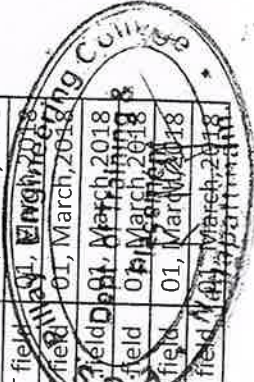 field 01, March,2018
field 01, March,2018
field 01, March,2018
field 01, March,2018
field 01, March,2018
field 01, March,2018
Engineering College
Dept. of Training &
Placement